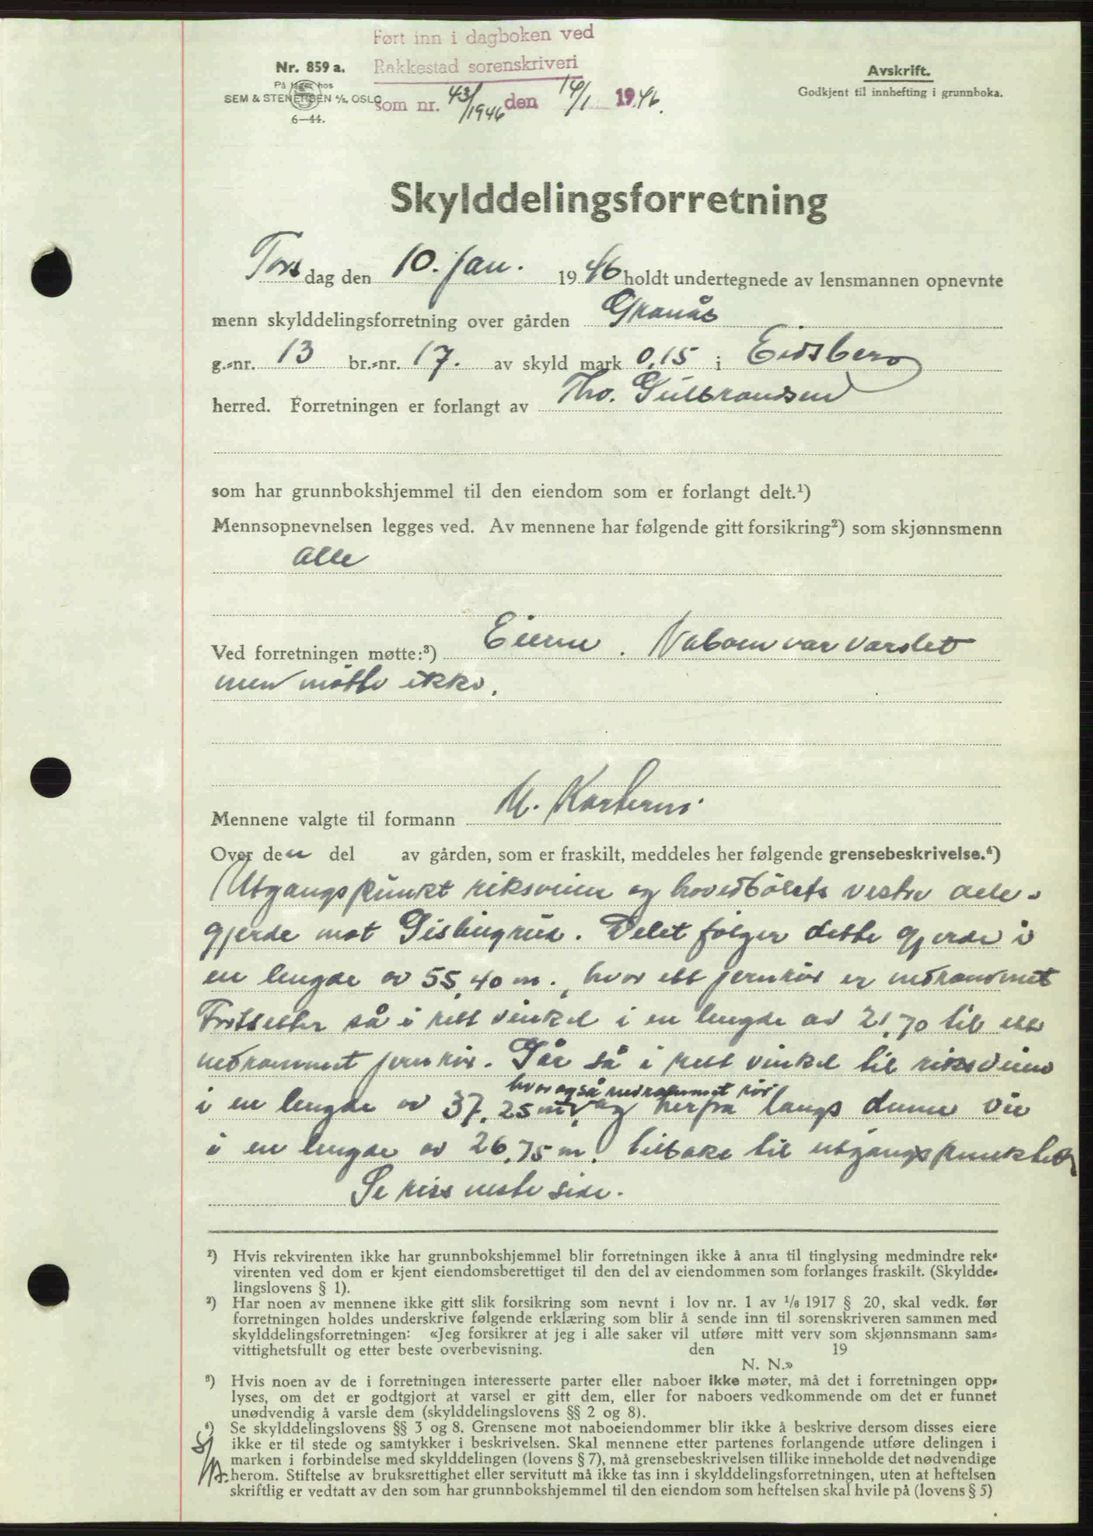 Ført inn i dagboken ved
Rakkestad sorenskriveri
som nr. 43/1946 den 14/1 1946.
Nr. 859 a.
På lager hos
SEM & STENERSEN A/S, OSLO
6—44.
Avskrift.
Godkjent til innhefting i grunnboka.
Skylddelingsforretning
Tors dag den 10. jan. 1946 holdt undertegnede av lensmannen opnevnte
menn skylddelingsforretning over gården Granås
g.-nr. 13 br.-nr. 17. av skyld mark 0,15 i Eidsberg
herred. Forretningen er forlangt av Tho. Gulbrandsen
som har grunnbokshjemmel til den eiendom som er forlangt delt.¹)
Mennsopnevnelsen legges ved. Av mennene har følgende gitt forsikring²) som skjønnsmenn
alle
Ved forretningen møtte:³) Eieren. Naboen var varslet
men møtte ikke.
Mennene valgte til formann M. Karterud
Over den del av gården, som er fraskilt, meddeles her følgende grensebeskrivelse.⁴)
Utgangspunkt riksveien og hovedbølets vestre dele-
gjerde mot Gislingrud. Delet følger dette gjerde i
en lengde av 55,40 m., hvor ett jernrør er nedrammet
Fortsetter så i rett vinkel i en lengde av 21,70 til ett
nedrammet jernrør. Går så i rett vinkel til riksveien
hvor også nedrammet rør
i en lengde av 37,25 m, og herfra langs denne vei
i en lengde av 26,75 m. tilbake til utgangspunktet
Se riss neste side.
¹) Hvis rekvirenten ikke har grunnbokshjemmel blir forretningen ikke å anta til tinglysing medmindre rek-
virenten ved dom er kjent eiendomsberettiget til den del av eiendommen som forlanges fraskilt. (Skyldde-
lingslovens § 1).
²) Har noen av mennene ikke gitt slik forsikring som nevnt i lov nr. 1 av 1/6 1917 § 20, skal vedk. før
forretningen holdes underskrive følgende erklæring som blir å sende inn til sorenskriveren sammen med
skylddelingsforretningen: «Jeg forsikrer at jeg i alle saker vil utføre mitt verv som skjønnsmann sam-
vittighetsfullt og etter beste overbevisning. den 19
N. N.»
³) Hvis noen av de i forretningen interesserte parter eller naboer ikke møter, må det i forretningen opp-
lyses, om det er godtgjort at varsel er gitt dem, eller for naboers vedkommende om det er funnet
unødvendig å varsle dem (skylddelingslovens §§ 2 og 8).
⁴) Se skylddelingslovens §§ 3 og 8. Grensene mot naboeiendommer blir ikke å beskrive dersom disses eiere
ikke er til stede og samtykker i beskrivelsen. Skal mennene etter partenes forlangende utføre delingen i
marken i forbindelse med skylddelingen (lovens § 7), må grensebeskrivelsen tillike inneholde det nødvendige
herom. Stiftelse av bruksrettighet eller servitutt må ikke tas inn i skylddelingsforretningen, uten at heftelsen
skriftlig er vedtatt av den som har grunnbokshjemmel til den eiendom som heftelsen skal hvile på (lovens § 5)